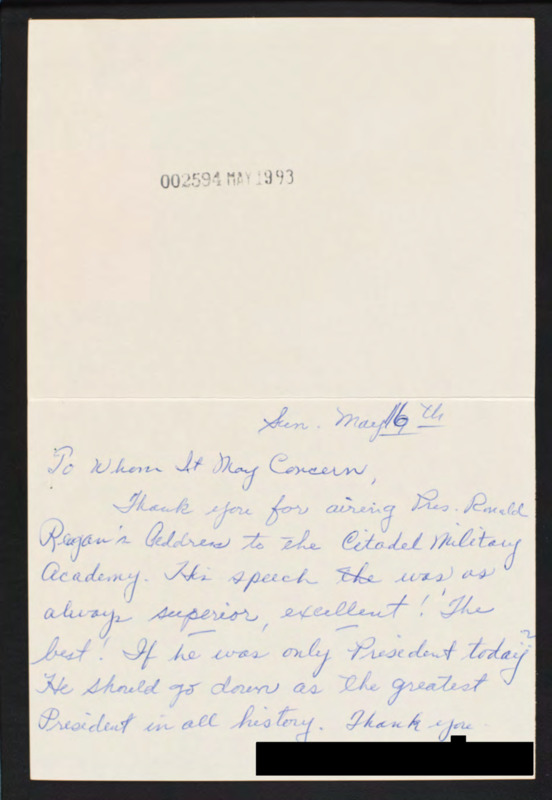 002594 MAY 1993
Sun. May 16th
To Whom It May Concern,
Thank you for airing Pres. Ronald
Reagan's Address to the Citadel Military
Academy. His speech the was as
always superior, excellent! The
best! If he was only President today
He should go down as the greatest
President in all history. Thank you